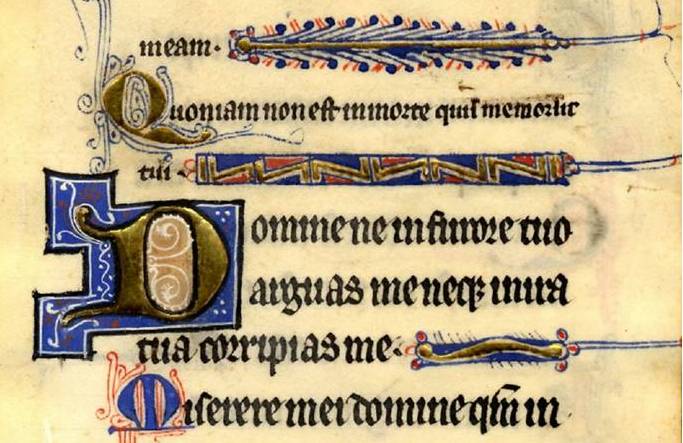 meam.
Quoniam non est in morte qui sit memor sit
tui.
Domine ne in furore tuo
arguas me neqꝫ in ira
tua corripias me.
Miserere mei domine qm̄ in